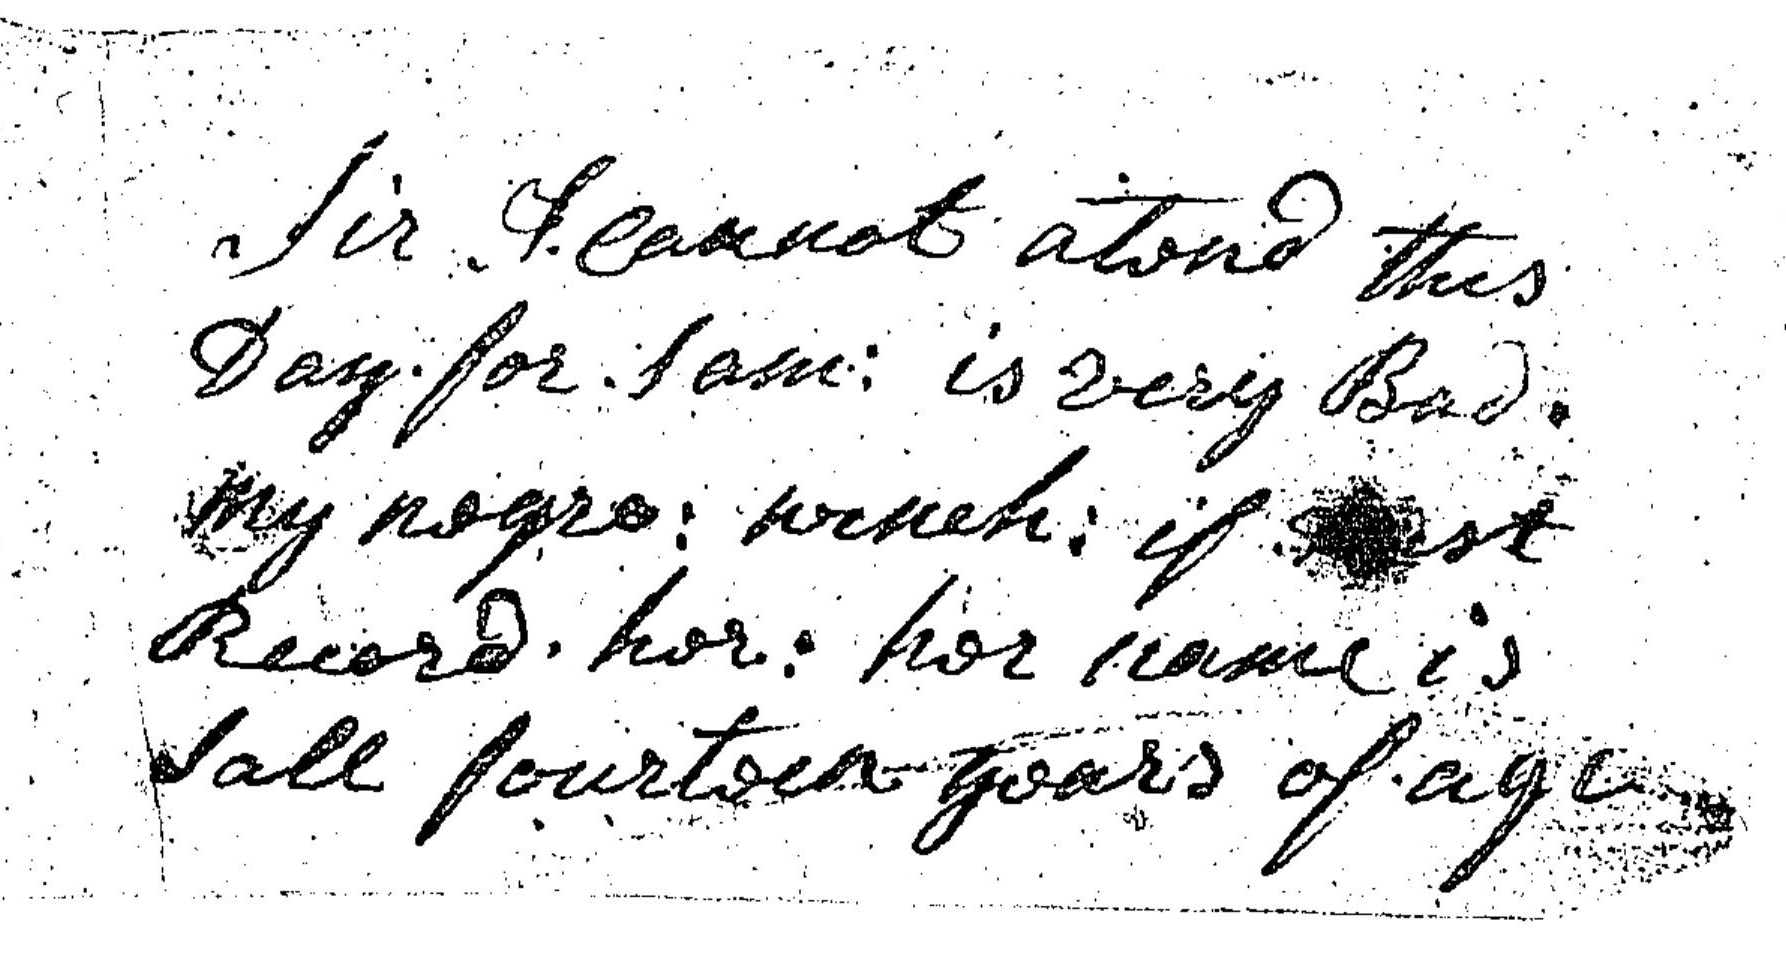 Sir I Cannot atend this
Day. for. Sam: is very Bad.
my negro: wench: if
Record. her: her name is
Sall fourteen years of age